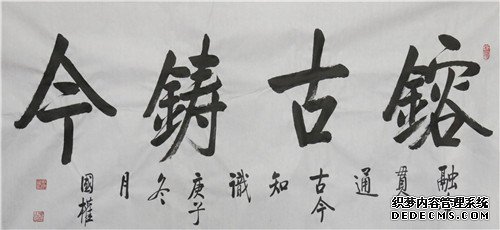 鎔古鋳今
融
貫
通
古今
知
識
庚子
冬
月
國權
织梦内容管理系统
DEDECMS.COM